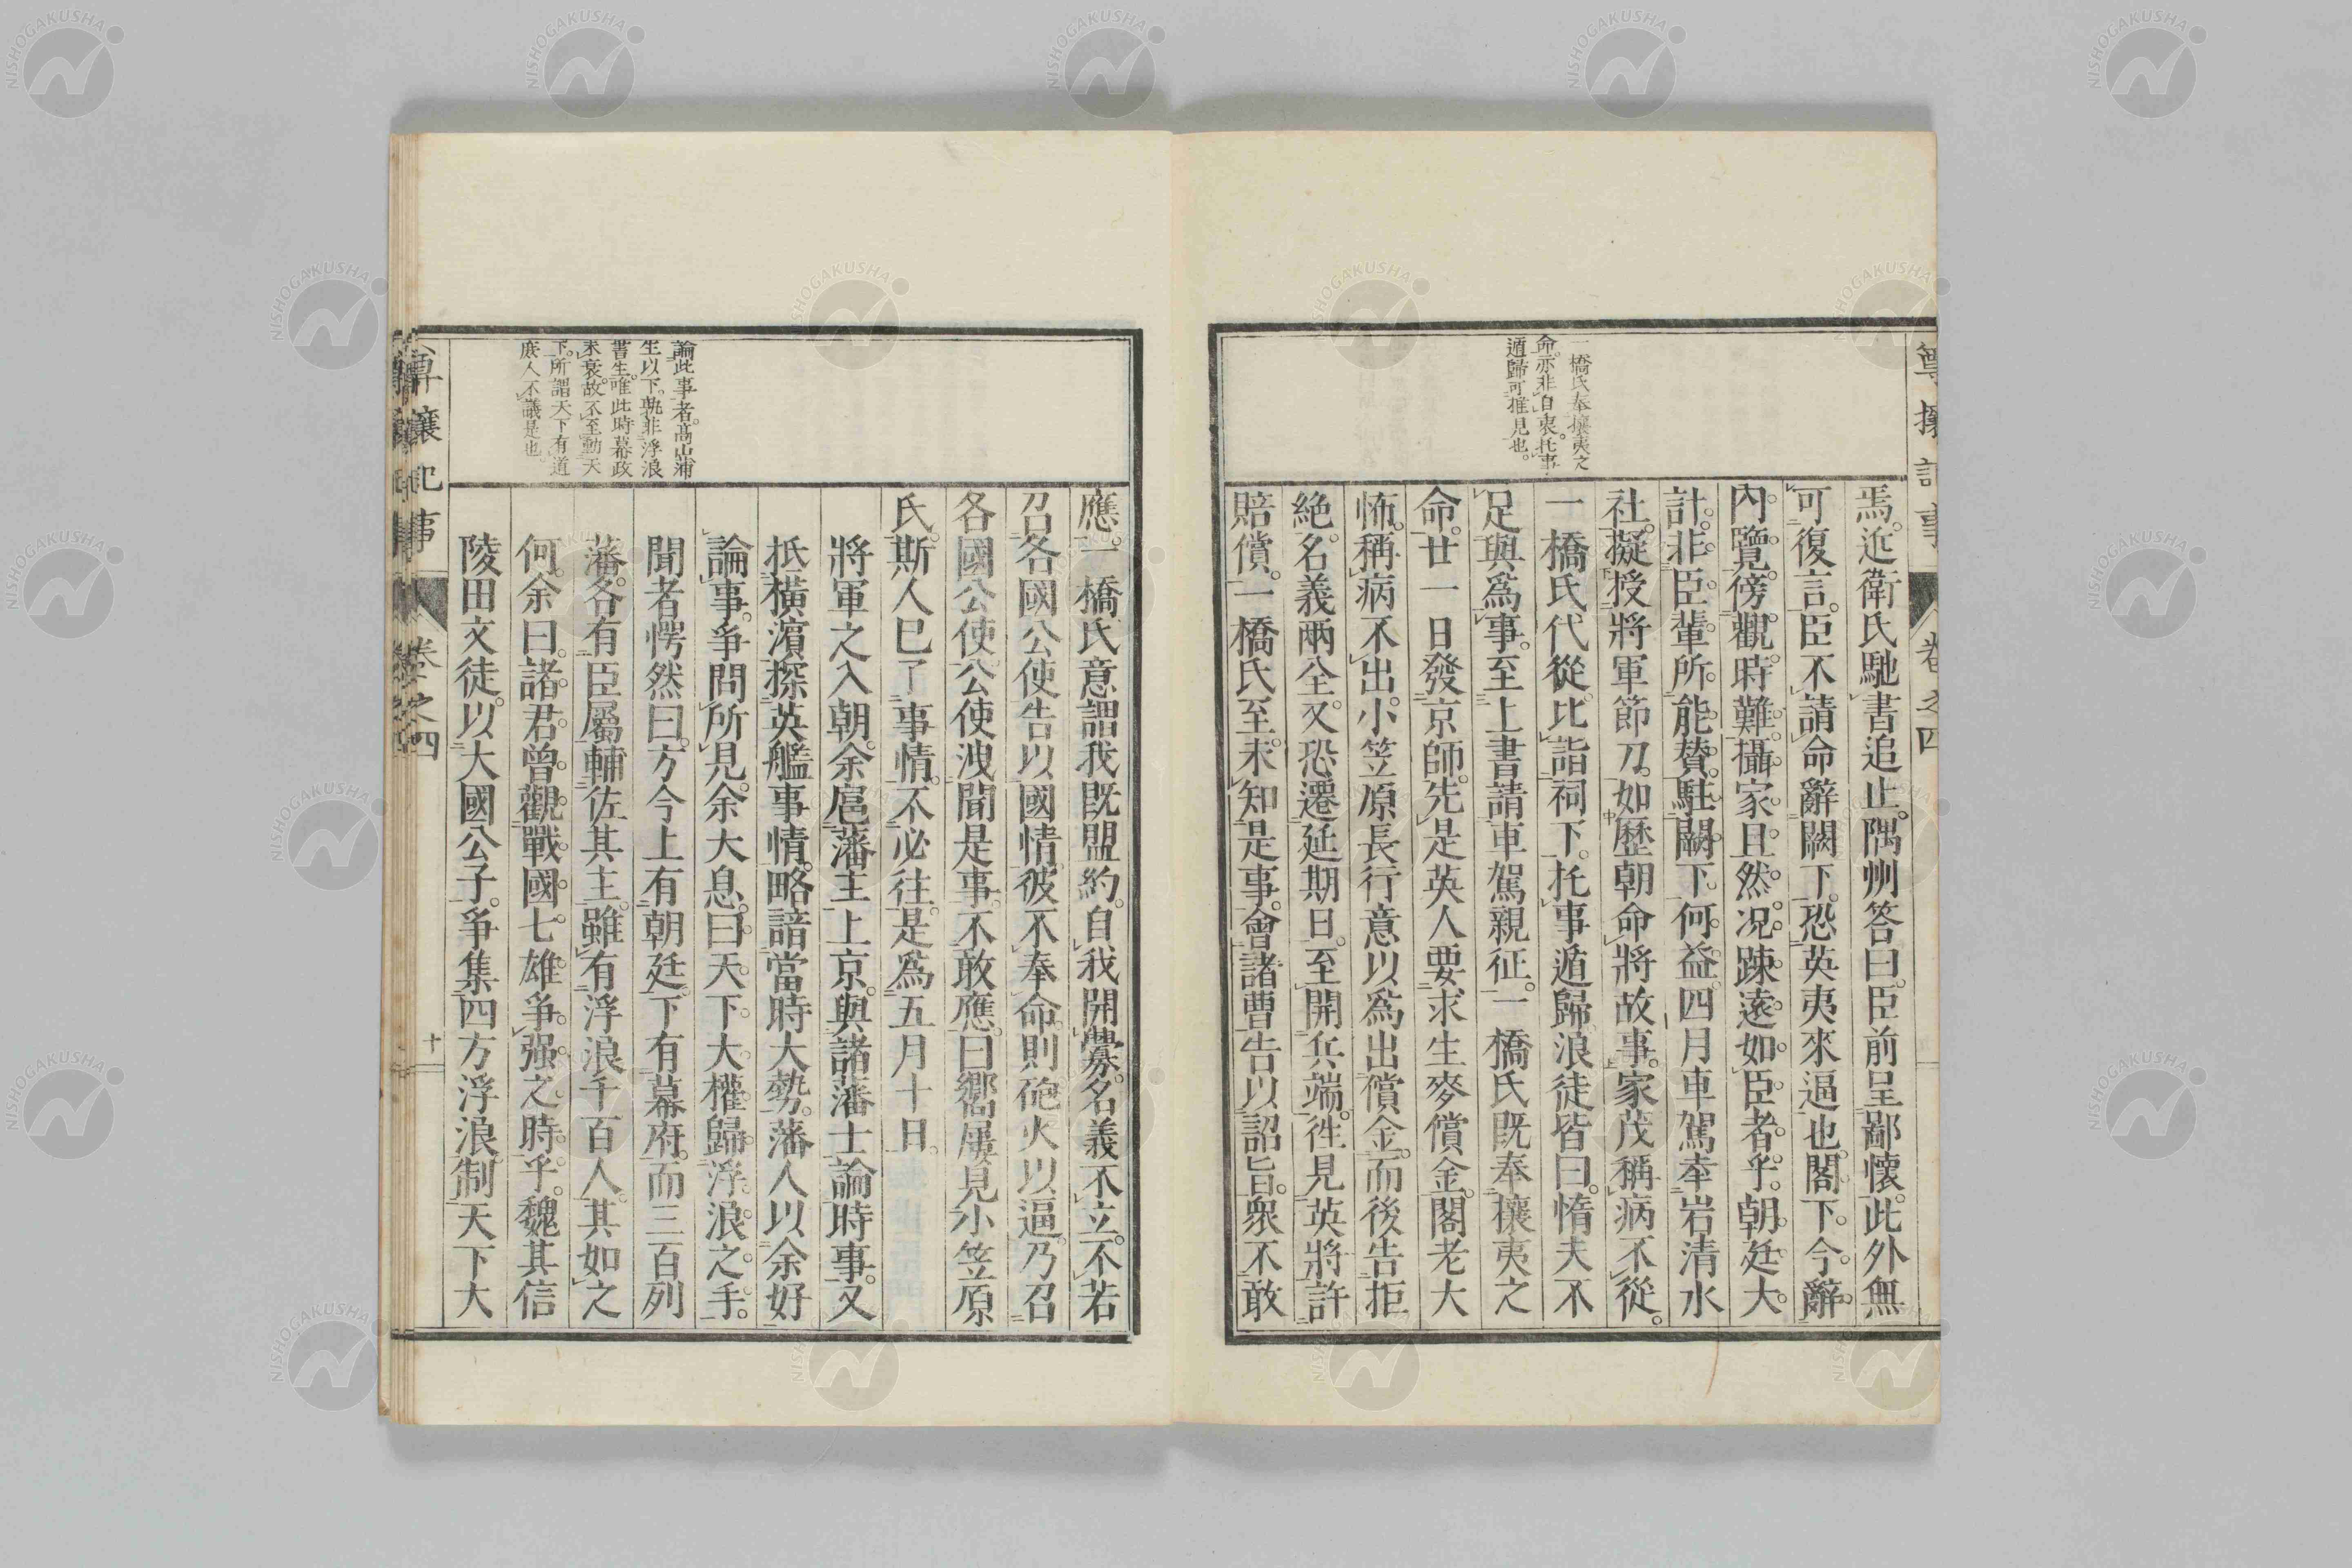 尊攘記事
卷之四
一橋氏奉攘夷之
命。亦非自衷。托事
遁歸可推見也。
焉。近衛氏馳書追止。隅州答曰。臣前呈鄙懷。此外無
可復言。臣不請命辭闕下。恐英夷來逼也。閣下。今。辭
內覽。傍觀時難。攝家且然。况踈遠如臣者乎。朝廷大
計。非臣輩所能贊。駐闕下。何益。四月車駕幸岩清水
社。擬授將軍節刀。如歷朝命將故事。家茂稱病不從。
一橋氏代從。比詣祠下。托事遁歸。浪徒皆曰。惰夫不
足與爲事。至上書請車駕親征。一橋氏既奉攘夷之
命。廿一日發京師。先是英人要求生麥償金。閣老大
怖。稱病不出。小笠原長行意以爲出償金。而後告拒
絶。名義兩全。又恐遷延期日。至開兵端。徃見英將許
賠償。一橋氏至。未知是事。會諸曹告以詔旨。衆不敢
應。一橋氏意謂我既盟約。自我開釁。名義不立。不若
召各國公使告以國情。彼不奉命。則砲火以逼。乃召
各國公使。公使洩聞是事。不敢應。曰嚮屢見小笠原
氏。斯人已了事情。不必往。是爲五月十日。
將軍之入朝。余扈藩主上京。與諸藩士論時事。又
抵橫濱探英艦事情。略諳當時大勢。藩人以余好
論事。爭問所見。余大息。曰。天下大權歸浮浪之手。
聞者愕然曰。方今上有朝廷。下有幕府。而三百列
藩。各有臣屬輔佐其主。雖有浮浪千百人。其如之
何。余曰。諸君曾觀戰國七雄爭强之時乎。魏其信
陵田文徒。以大國公子。爭集四方浮浪。制天下大
論此事者。高山蒲
生以下。孰非浮浪
書生。唯此時幕政
未衰。故不至動天
下。所謂天下有道
庶人不議是也。
尊攘記事
卷之四
十